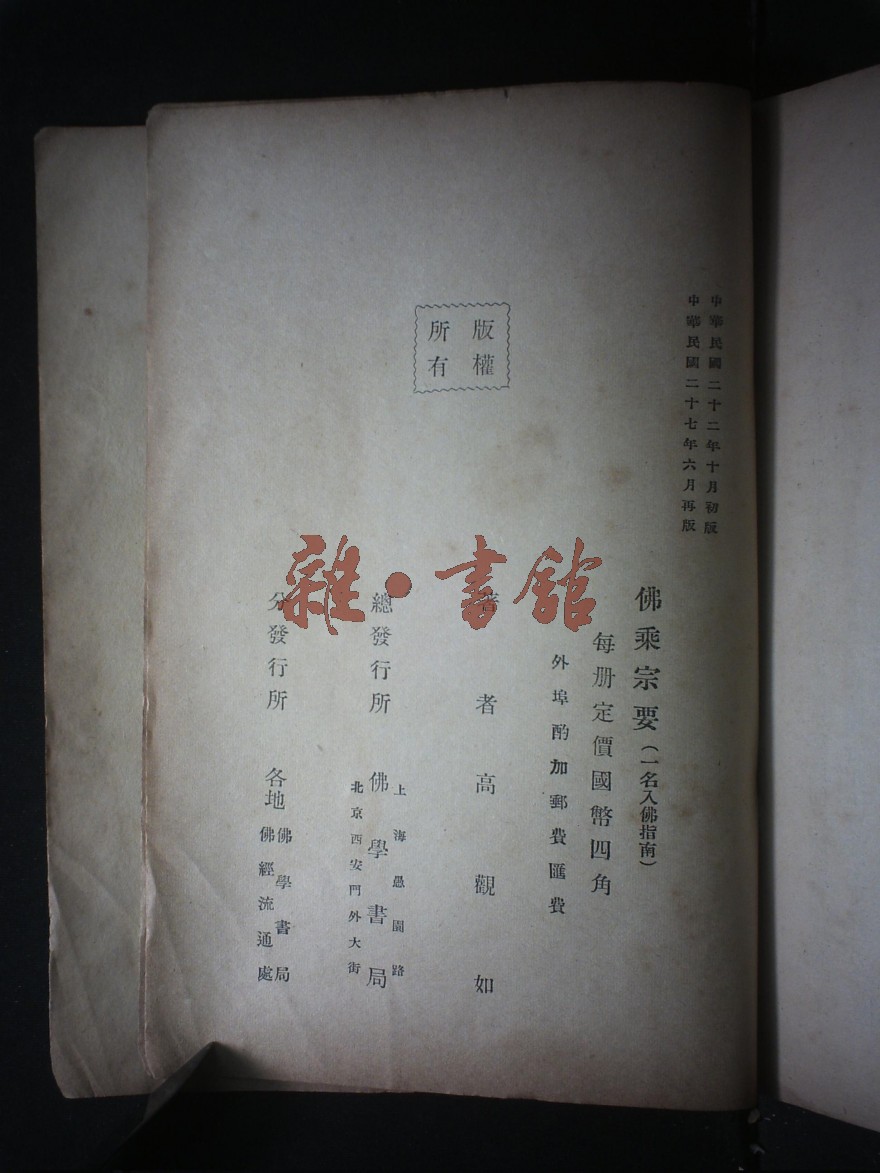 中華民國二十二年十月初版
中華民國二十七年六月再版
佛乘宗要（一名入佛指南）
每册定價國幣四角
外埠酌加郵費匯費
版權
所有
著者高觀如
上海愚園路
總發行所 佛學書局
北京西安門外大街
分發行所 各地
佛學書局
佛經流通處
雜·書館